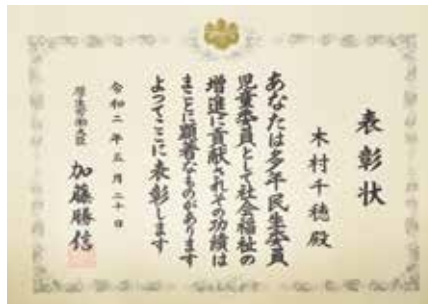 表彰状
木村千穂殿
あなたは多年民生委員
児童委員として社会福祉の
増進に貢献されその功績は
まことに顕著なものがあります
よってここに表彰します
令和二年五月二十日
厚生労働大臣 加藤勝信